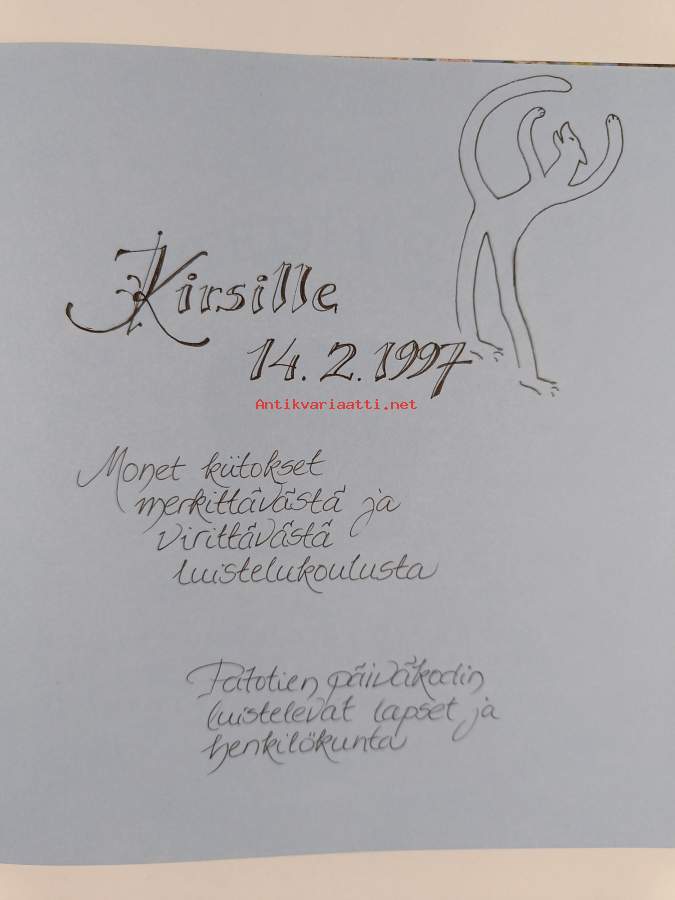 Kirsille
14.2.1997
Antikvariaatti.net
Monet kiitokset
merkittävästä ja
virittävästä
luistelukoulusta
Patotien päiväkodin
luistelevat lapset ja
henkilökunta